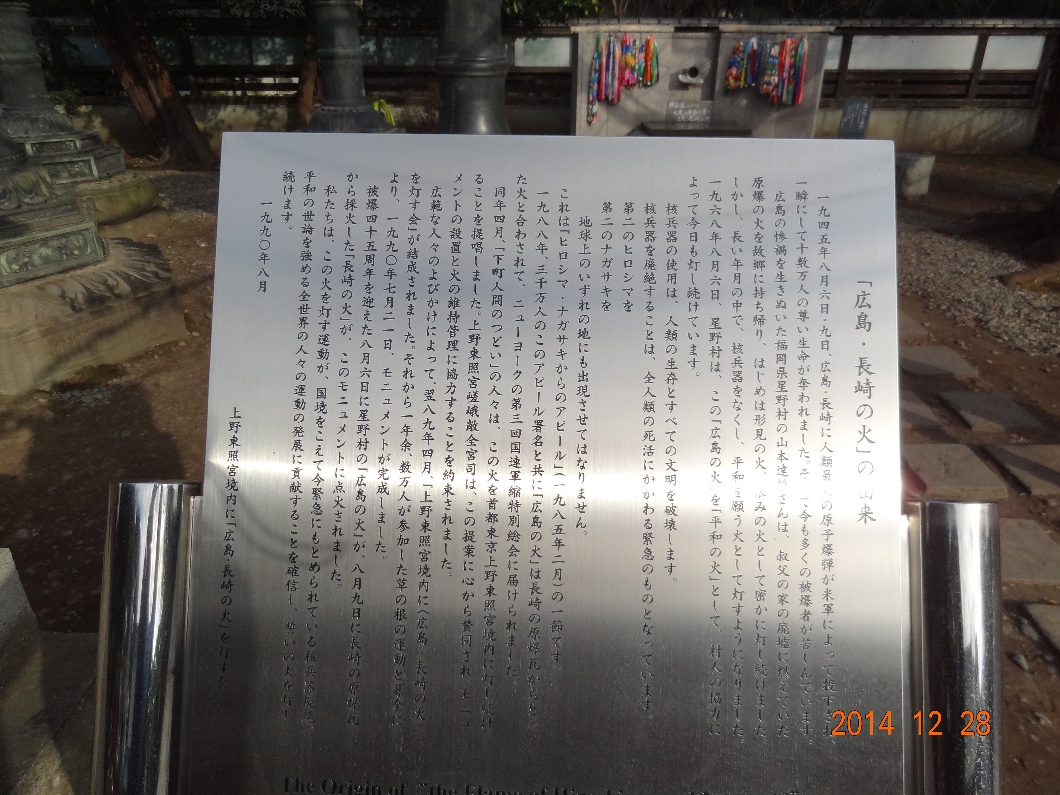 「広島・長崎の火」の由来
一九四五年八月六日・九日、広島・長崎に人類最 の原子爆弾が米軍によって投下
一瞬にして十数万人の尊い生命が奪われました。そ て今も多くの被爆者が苦しんでいます。
広島の惨禍を生きぬいた福岡県星野村の山本達 さんは、叔父の家の廃墟に燃えていた
原爆の火を故郷に持ち帰り、はじめは形見の火、 みの火として密かに灯し続けました。
しかし、長い年月の中で、核兵器をなくし、平和を願う火として灯すようになりました。
一九六八年八月六日、星野村は、この「広島の火」を「平和の火」として、村人の協力に
よって今日も灯し続けています。
核兵器の使用は、人類の生存とすべての文明を破壊します。
核兵器を廃絶することは、全人類の死活にかかわる緊急のものとなっています。
第二のヒロシマを
第二のナガサキを
地球上のいずれの地にも出現させてはなりません。
これは「ヒロシマ・ナガサキからのアピール」(一九八五年二月)の一節です。
一九八八年、三千万人のこのアピール署名と共に「広島の火」は長崎の原爆瓦からとっ
た火と合わされて、ニューヨークの第三回国連軍縮特別総会に届けられました。
同年四月、「下町人間のつどい」の人々は、この火を首都東京上野東照宮境内に灯し続け
ることを提唱しました。上野東照宮嵯峨敞全宮司は、この提案に心から賛同され、モニュ
メントの設置と火の維持管理に協力することを約束されました。
広範な人々のよびかけによって、翌八九年四月、「上野東照宮境内に〈広島・長崎の火〉
を灯す会」が結成されました。それから一年余、数万人が参加した草の根の運動と募金に
より、一九九〇年七月二一日、モニュメントが完成しました。
被爆四十五周年を迎えた八月六日に星野村の「広島の火」が、八月九日に長崎の原爆瓦
から採火した「長崎の火」が、このモニュメントに点火されました。
私たちは、この火を灯す運動が、国境をこえて今緊急にもとめられている核兵器廃絶、
平和の世論を強める全世界の人々の運動の発展に貢献することを確信し、誓いの火を灯し
続けます。
一九九〇年八月
上野東照宮境内に「広島・長崎の火」を灯す
The Origin of "the Flame of
2014 12 28